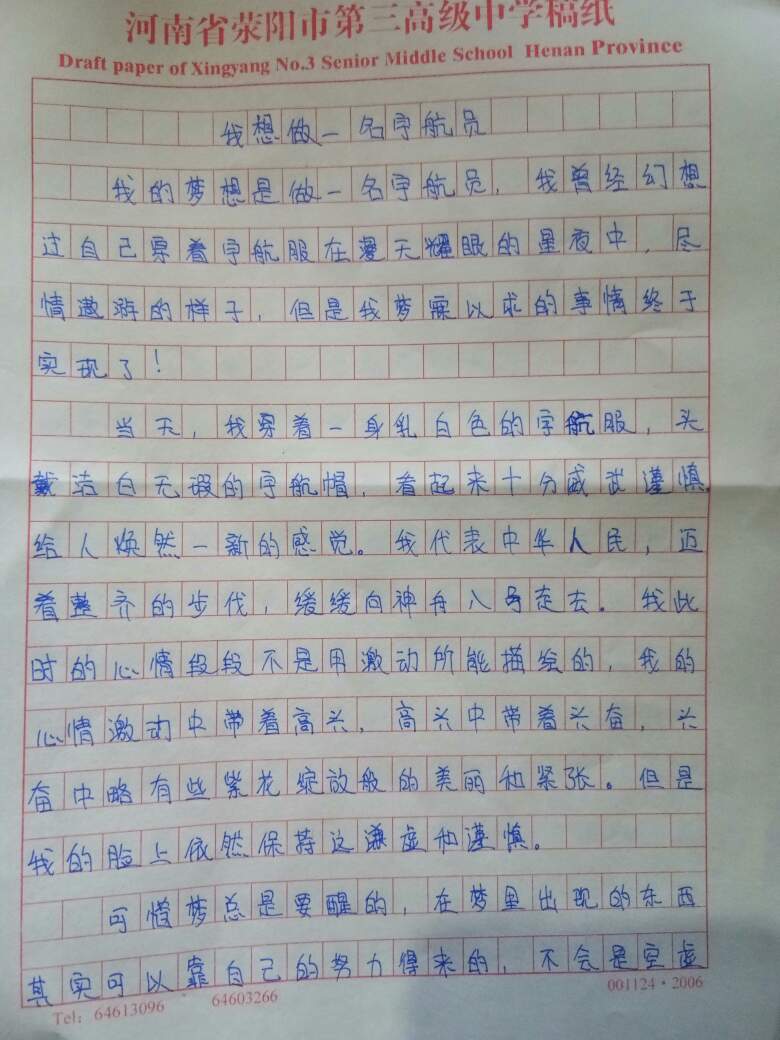 河南省荥阳市第三高级中学稿纸
Draft paper of Xingyang No.3 Senior Middle School Henan Province
我想做一名宇航员
我的梦想是做一名宇航员，我曾经幻想
过自己穿着宇航服在漫天耀眼的星夜中，尽
情遨游的样子，但是我梦寐以求的事情终于
实现了！
当天，我穿着一身乳白色的宇航服，头
戴洁白无瑕的宇航帽，看起来十分威武谨慎，
给人焕然一新的感觉。我代表中华人民，迈
着整齐的步伐，缓缓向神舟八号走去。我此
时的心情段段不是用激动所能描绘的，我的
心情激动中带着高兴，高兴中带着兴奋，兴
奋中略有些紫花绽放般的美丽和紧张。但是
我的脸上依然保持这谦虚和谨慎。
可惜梦总是要醒的，在梦里出现的东西
其实可以靠自己的努力得来的，不会是空虚
Tel: 64613096 · 64603266
001124·2006